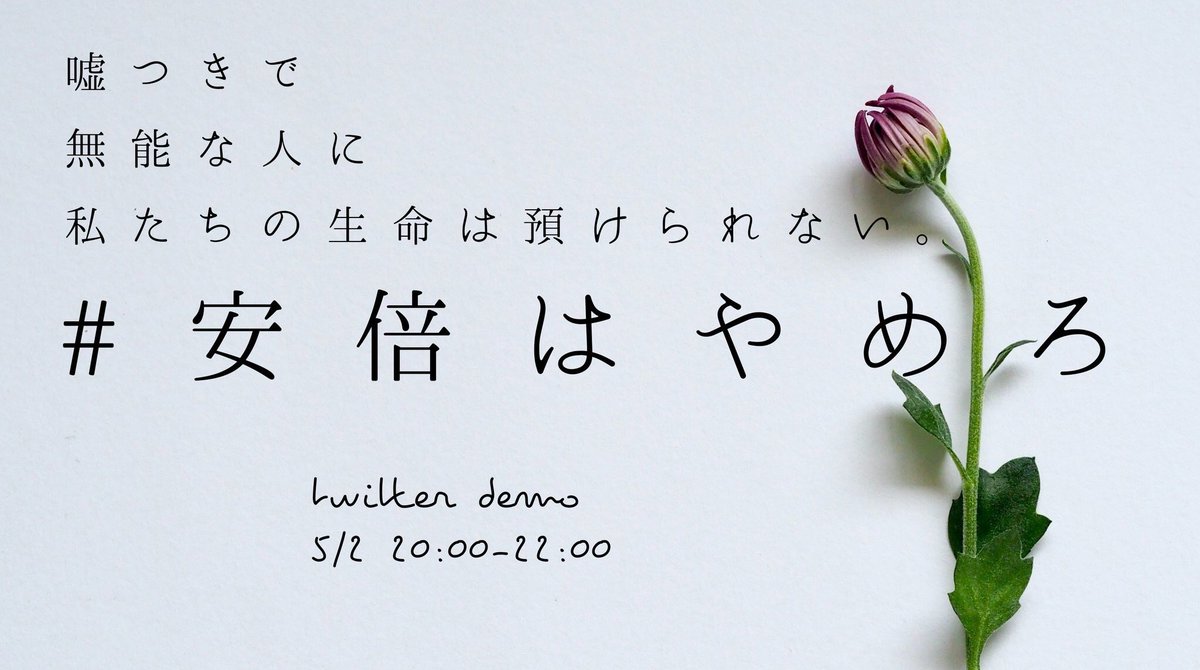 嘘つきで
無能な人に
私たちの生命は預けられない。
#安倍はやめろ
twitter demo
5/2 20:00-22:00